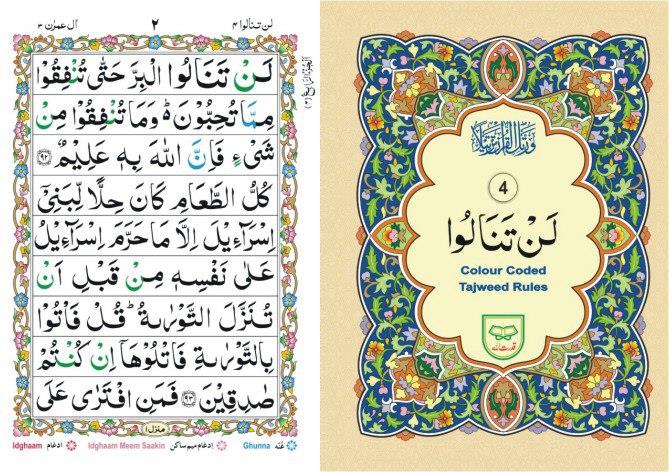 لن تنالوا ۴
۲
اٰل عمرٰن ۳
لَنْ تَنَالُوا الْبِرَّ حَتّٰى تُنْفِقُوْا
مِمَّا تُحِبُّوْنَ ؕ وَمَا تُنْفِقُوْا مِنْ
شَىْءٍ فَاِنَّ اللّٰهَ بِهٖ عَلِيْمٌ ۹۲
كُلُّ الطَّعَامِ كَانَ حِلًّا لِّبَنِىْۤ
اِسْرَآءِيْلَ اِلَّا مَا حَرَّمَ اِسْرَآءِيْلُ
عَلٰى نَفْسِهٖ مِنْ قَبْلِ اَنْ
تُنَزَّلَ التَّوْرٰىةُ ؕ قُلْ فَاْتُوْا
بِالتَّوْرٰىةِ فَاتْلُوْهَاۤ اِنْ كُنْتُمْ
صٰدِقِيْنَ ۹۳ فَمَنِ افْتَرٰى عَلَى
منزل ۱
Idghaam ادغام
Idghaam Meem Saakin ادغام میم ساکن
Ghunna غنّہ
وَرَتِّلِ الْقُرْاٰنَ تَرْتِيْلًا
4
لَنْ تَنَالُوا
Colour Coded
Tajweed Rules